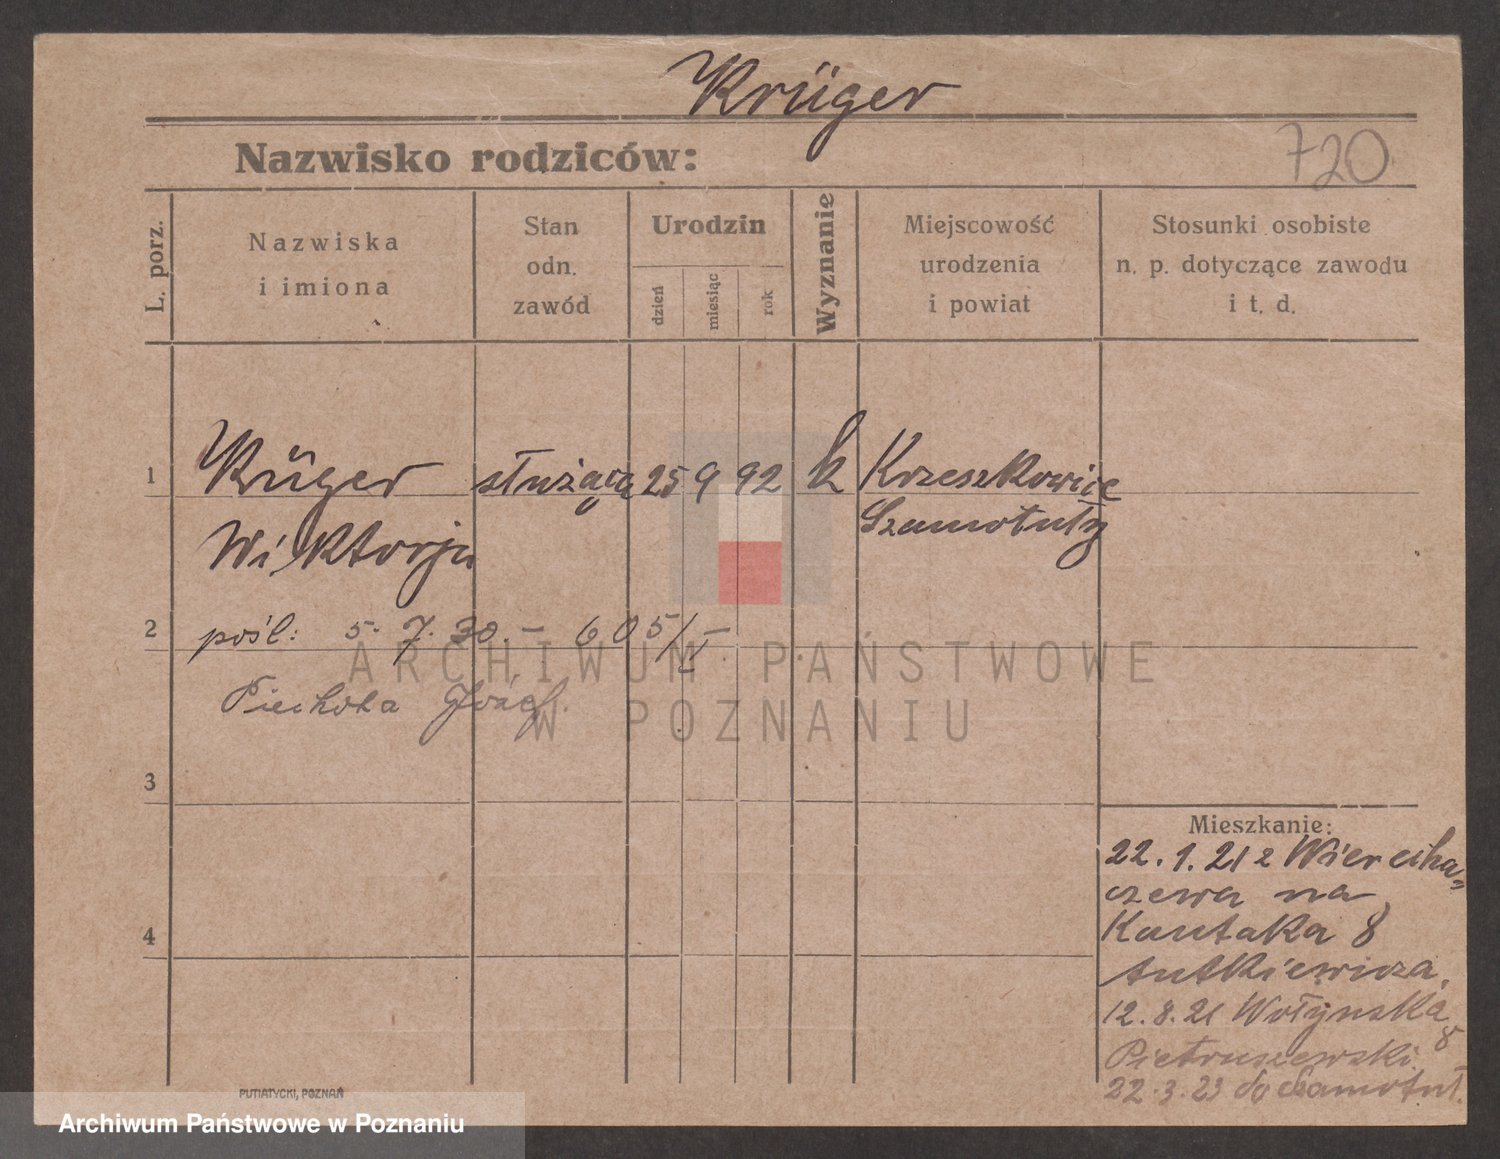 Krüger
Nazwisko rodziców:
720
L. porz.
Nazwiska
i imiona
Stan
odn.
zawód
Urodzin
dzień
miesiąc
rok
Wyznanie
Miejscowość
urodzenia
i powiat
Stosunki osobiste
n. p. dotyczące zawodu
i t. d.
1
Krüger służąca 25 9 92 k Krzeszkowice
Szamotuły
Wiktorja
2
pośl: 5. 7. 30. – 605/II –
Piechota Józef.
3
4
Mieszkanie:
22. 1. 21 z Wierzcha-
czewa na
Kantaka 8
Antkiewicza.
12. 8. 21 Wołyńska 8
Pietruszewski.
22. 3. 23 do Szamotuł.
PUTIATYCKI, POZNAŃ
ARCHIWUM PAŃSTWOWE
W POZNANIU
Archiwum Państwowe w Poznaniu